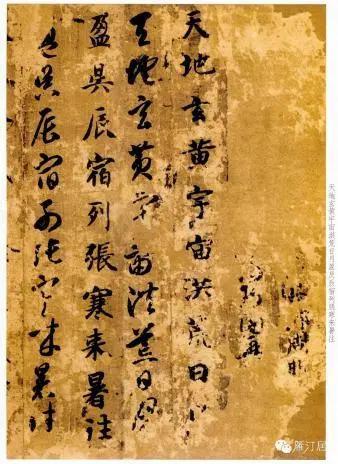 天地玄黄宇宙洪荒日月盈昃辰宿列張寒来暑往
天地玄黄宇宙洪荒日月
天地玄黄宇宙洪荒日月
盈昃辰宿列張寒来暑往
盈昃辰宿列張寒来暑往
雁汀居